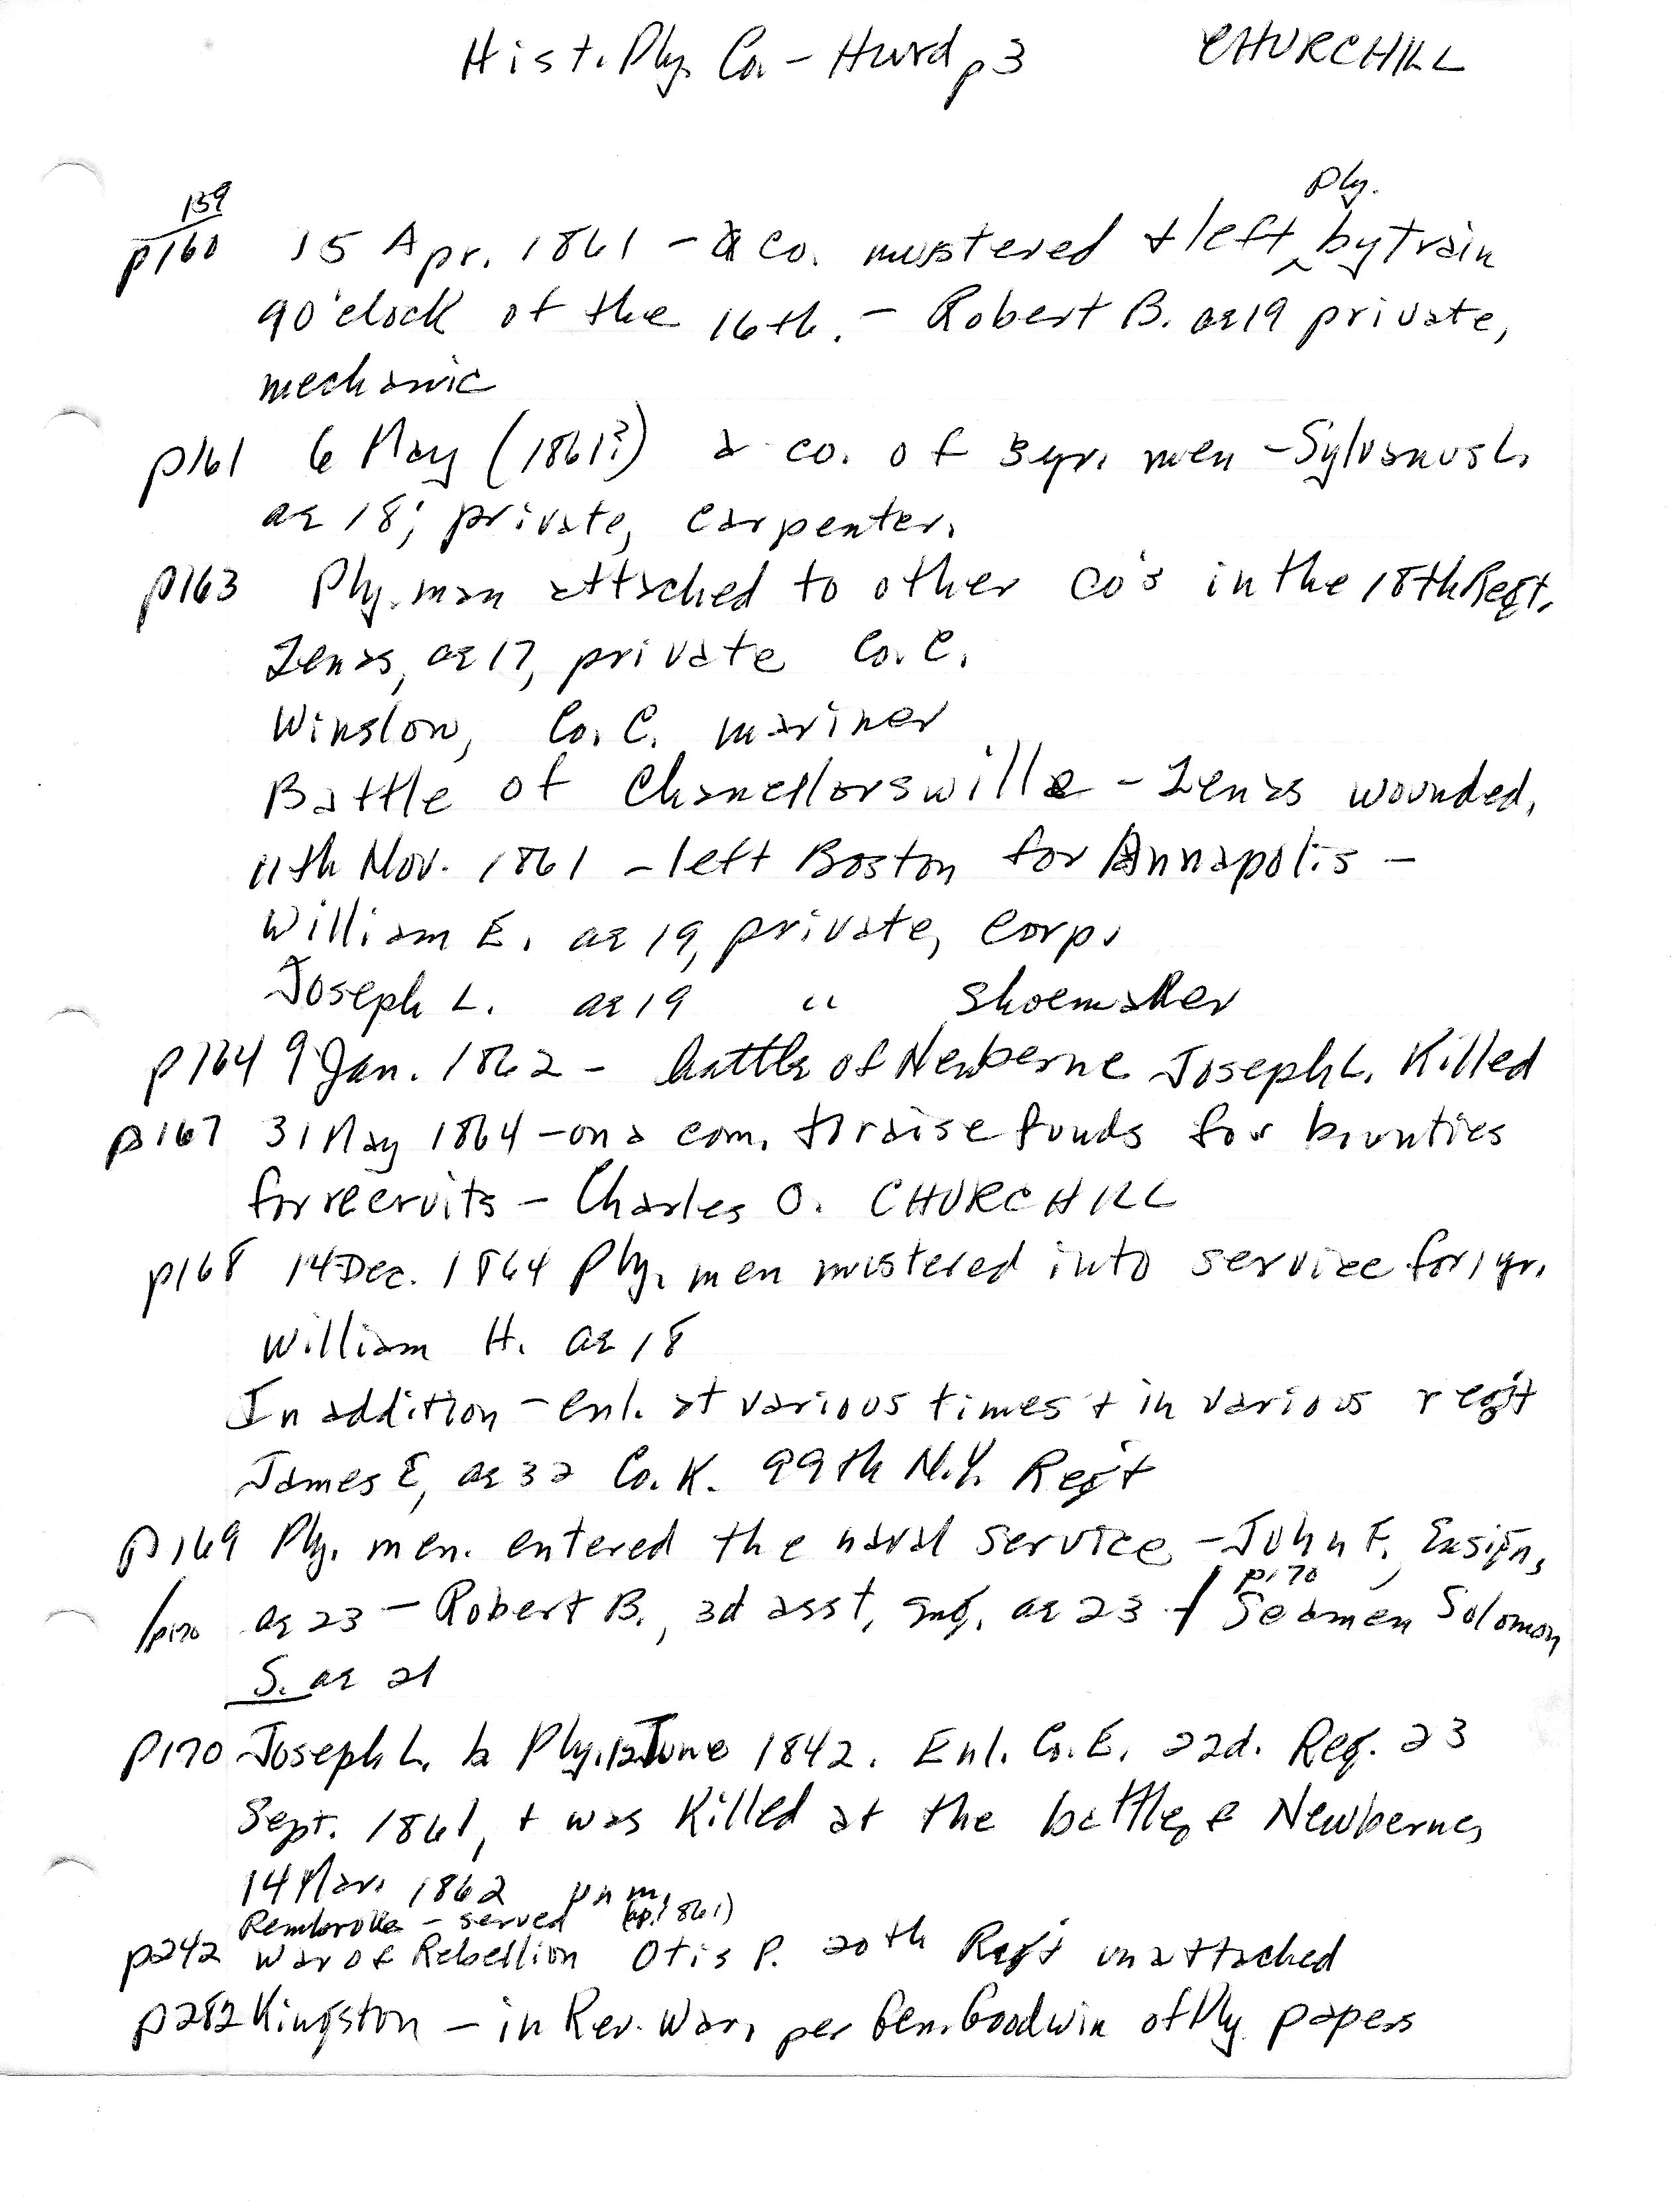 Hist. Ply. Co. - Hurd p3 CHURCHILL
159
Ply.
p160 15 Apr. 1861 - a co. mustered + left ^ by train
9 o'clock of the 16th. - Robert B. ae 19 private,
mechanic
p161 6 May (1861?) a co. of 3 yr. men - Sylvanus L.
ae 18; private, carpenter.
p163 Ply. man attached to other co's in the 18th Reg't.
Zenas, ae 17, private Co. C.
Winslow, Co. C. mariner
Battle of Chancellorsville - Zenas wounded.
11th Nov. 1861 - left Boston for Annapolis -
William E. ae 19, private, Corp.
Joseph L. ae 19 " shoemaker
p164 9 Jan. 1862 - battle of Newberne Joseph L. Killed
p167 31 May 1864 - on a com. to raise funds for bounties
for recruits - Charles O. CHURCHILL
p168 14 Dec. 1864 Ply. men mustered into service for 1 yr.
William H. ae 18
In addition - enl. at various times + in various reg't
James E, ae 32 Co. K. 99th N.Y. Reg't
p169 Ply. men. entered the naval service - John F., Ensign,
p.170
/p170 ae 23 - Robert B., 3d asst, eng. ae 23 - / Seamen Solomon
S. ae 21
p170 Joseph L. b Ply. 12 June 1842. Enl. Co. E. 22d. Reg. 23
Sept. 1861, + was Killed at the battle of Newberne,
14 Mar. 1862 unm.
Pembroke - served (ap. 1861)
p242 War of Rebellion Otis P. 20th Reg't unattached
p282 Kingston - in Rev. War, per Gen. Goodwin of Ply papers